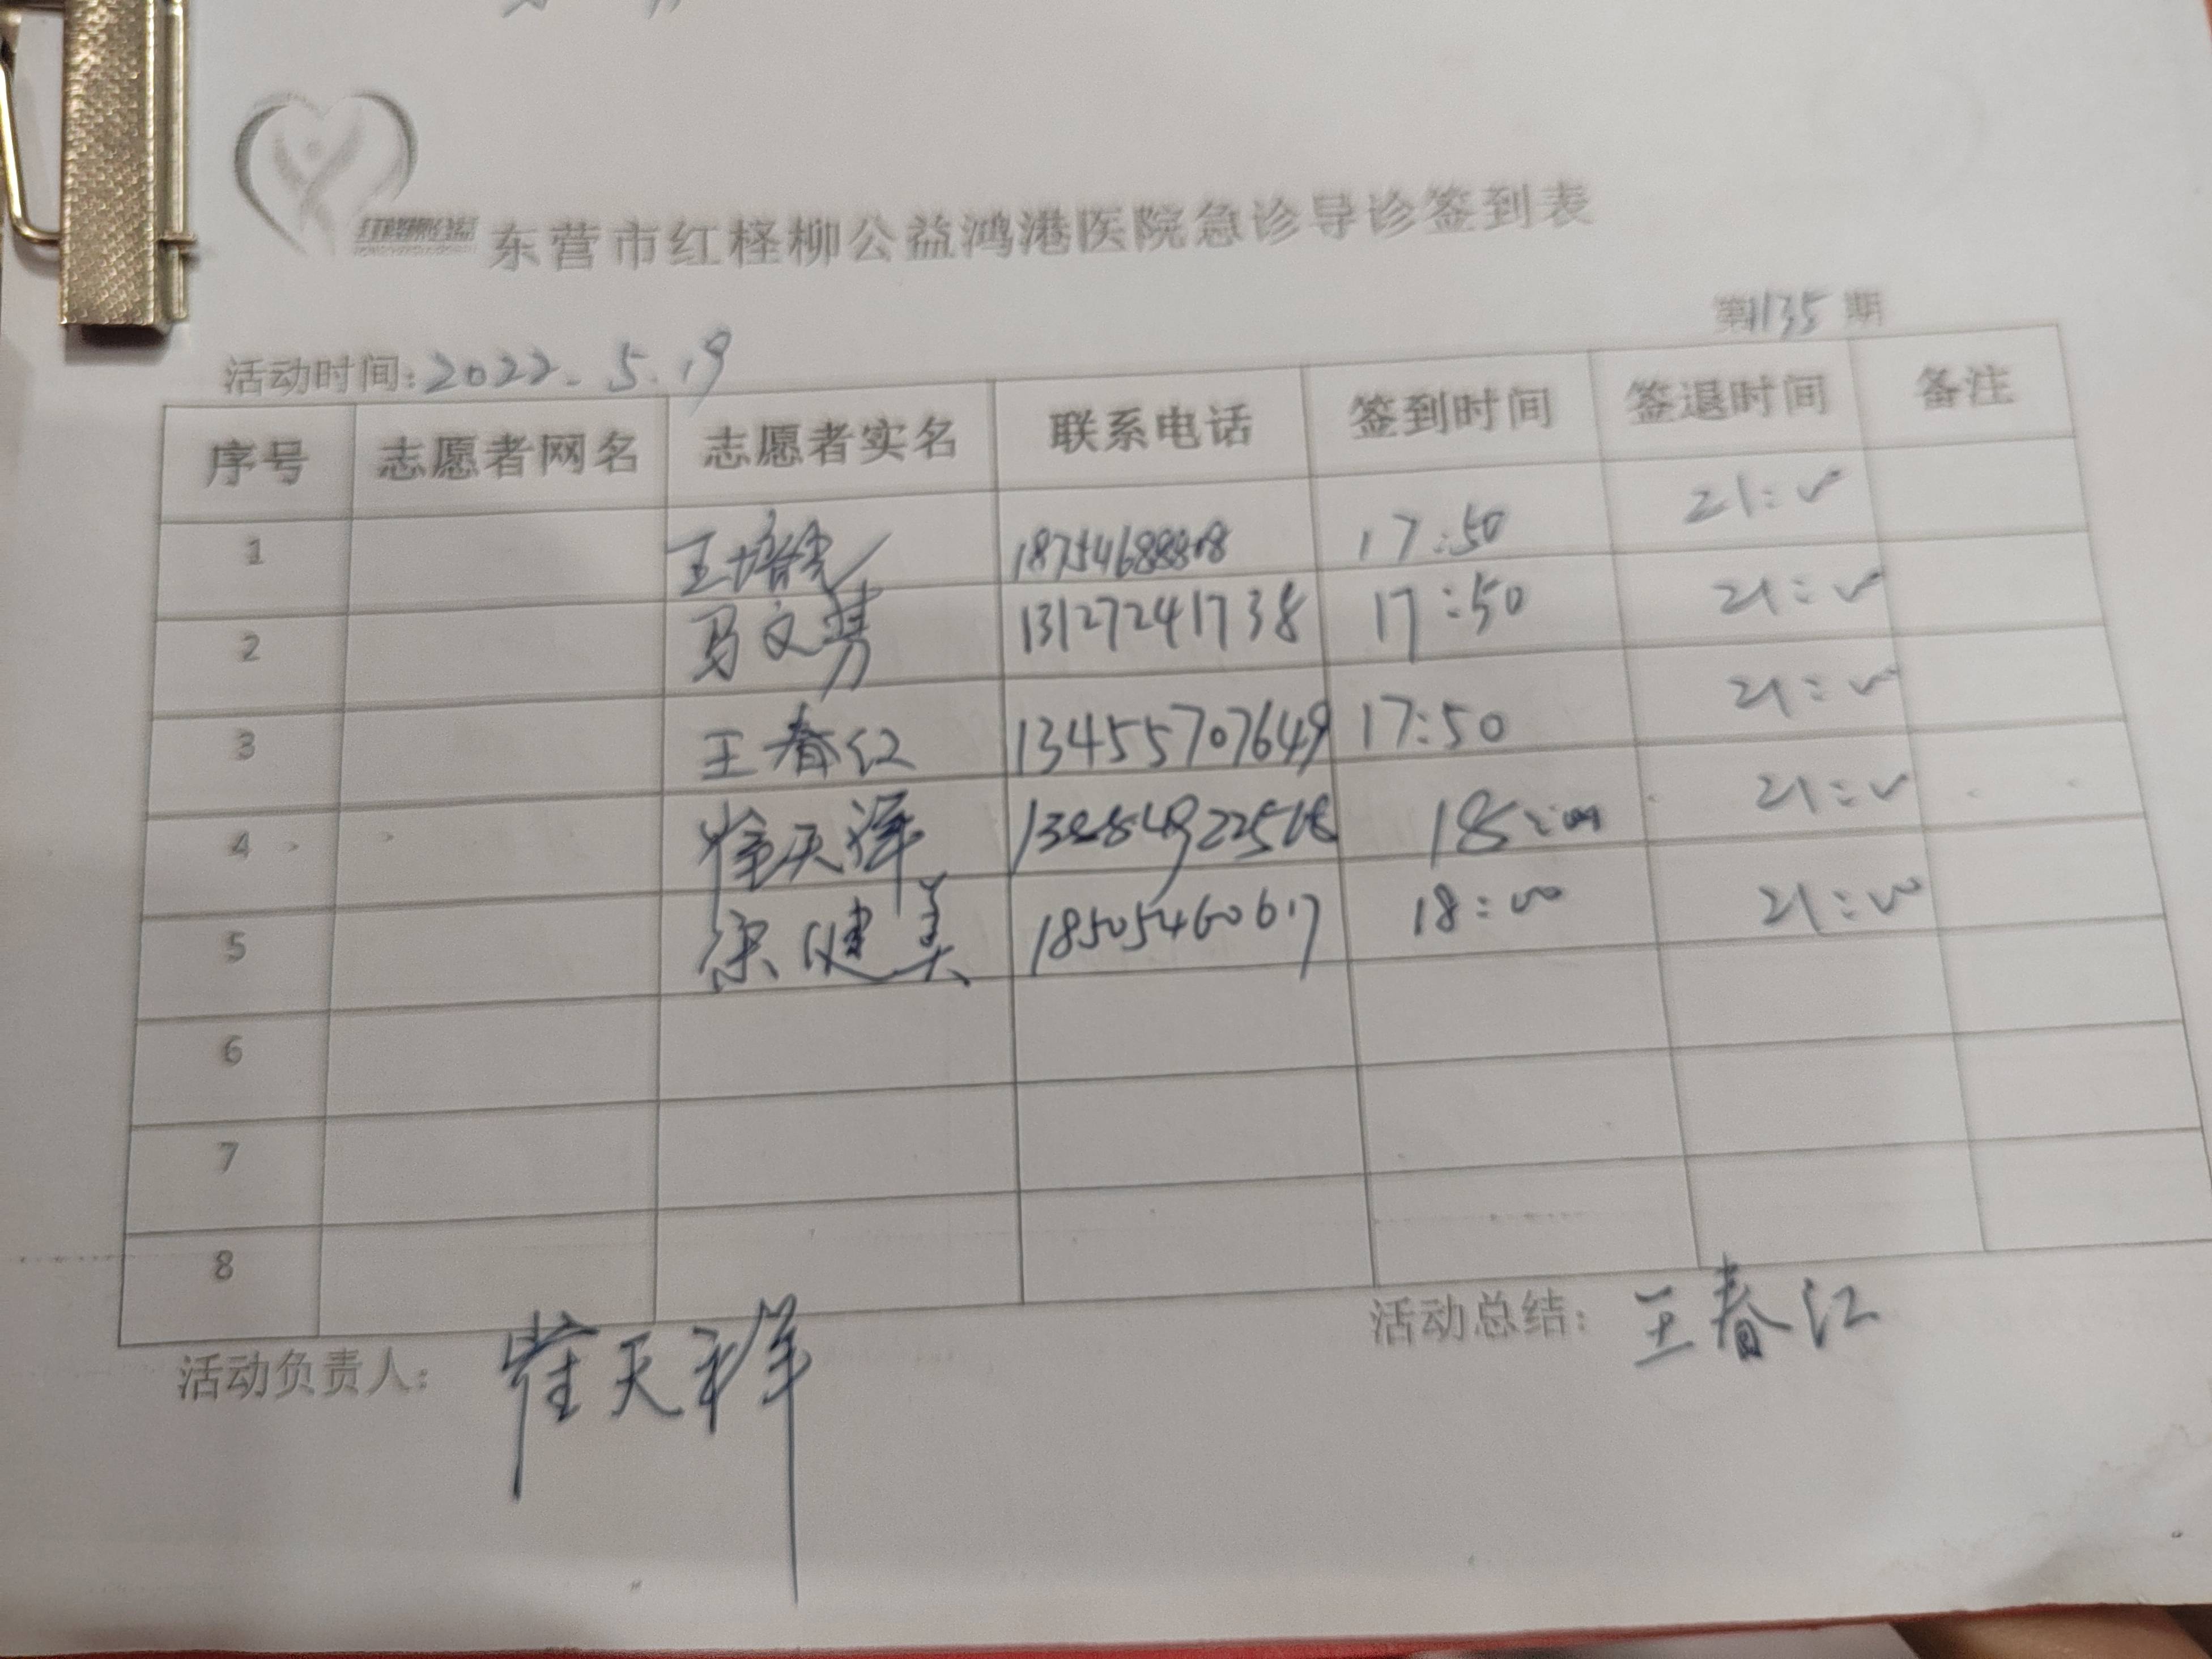 东营市红柽柳公益鸿港医院急诊导诊签到表
第135期
活动时间:2022.5.19
序号 志愿者网名 志愿者实名 联系电话 签到时间 签退时间 备注
1 17:50 21:00
2 马文慧 13127241738 17:50 21:00
3 王春江 13455707649 17:50 21:00
4 崔天祥 18:00 21:00
5 宋健美 18505460617 18:00 21:00
6
7
8
活动负责人: 崔天祥
活动总结: 王春江